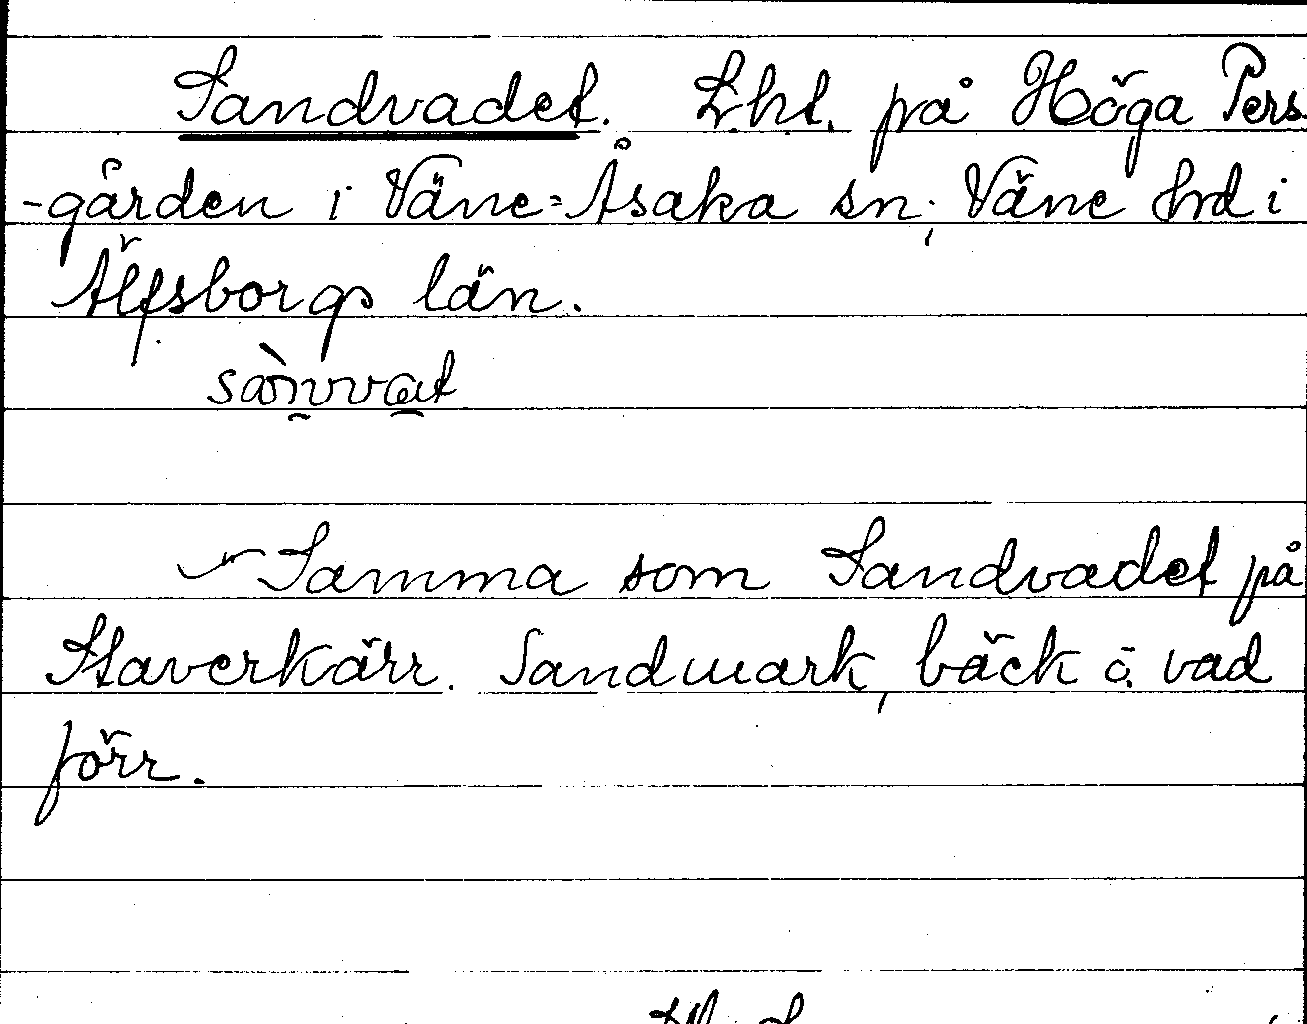 Sandvadet. L.ht. på Höga Pers
-gården i Väne=Åsaka sn, Väne hrd i
Älfsborgs län.
sànvvat
Samma som Sandvadet på
Staverkärr. Sandmark, bäck o. vad
förr.